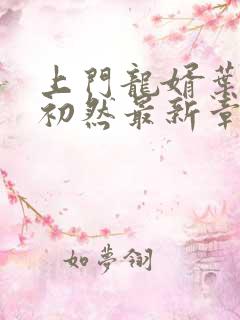 上門龍婿葉
初然最新章
如夢翎